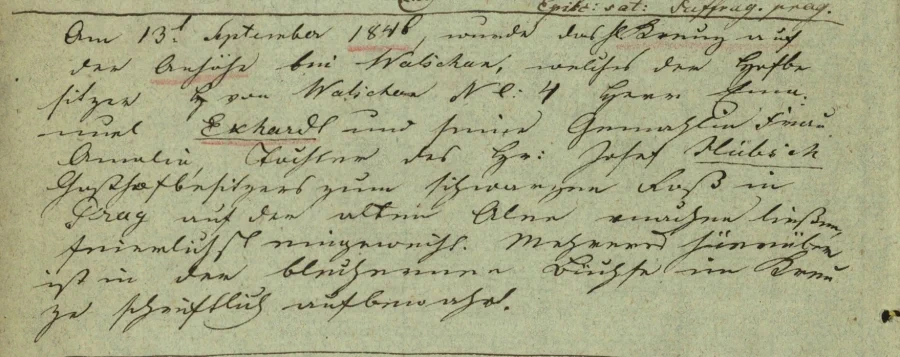 Episc: sat: Suffrag. prag.
Am 13t September 1846, wurde das hl Kreuz auf
der Anhöhe bei Walichan, welches der Hofbe
sitzer von Walichan N C: 4 Herr Ema:
nuel Ekhardt und seine Gemahlin Frau
Amalia, Tochter des Hr: Josef Hübsch
Gasthofbesitzers zum schwarzen Roß in
Prag auf der alten Alee machen ließen,
feierlichst eingeweiht. Mehreres hierüber
ist in der blechernen Büchse im Kreu
ze schriftlich aufbewahrt.